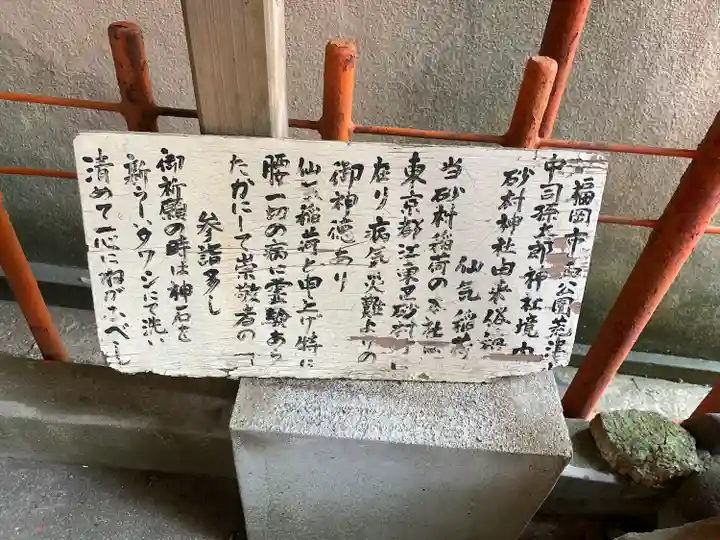 福岡市西公園荒津山
中司孫太郎神社境内
砂村神社由来
仙気稲荷
当砂村稲荷の本社は
東京都江東区砂村町に
在り病気災難よりの
御神徳あり
仙気稲荷と申上げ特に
腰一切の病に霊験あら
たかにして崇敬者の
参詣多し
御祈願の時は神石を
新らしいタワシにて洗い
清めて一心にねがうべし